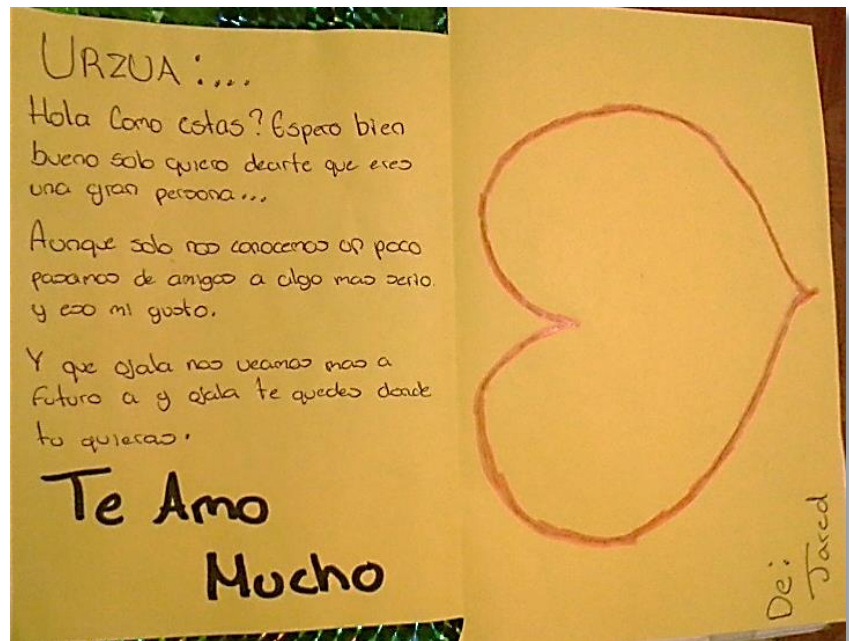 URZUA:...
Hola Como estas? Espero bien
bueno solo quiero decirte que eres
una gran persona...
Aunque solo nos conocemos un poco
pasamos de amigos a algo mas serio.
y eso mi gusto.
Y que ojala nos veamos mas a
futuro a y ojala te quedes donde
tu quieras.
Te Amo
Mucho
De:
Jared